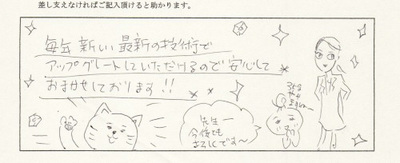 差し支えなければご記入頂けると助かります。
毎毎新しい最新の技術で
アップグレードしていただけるので安心して
おまかせしております!!
先生ー
今後とも
よろしくです〜